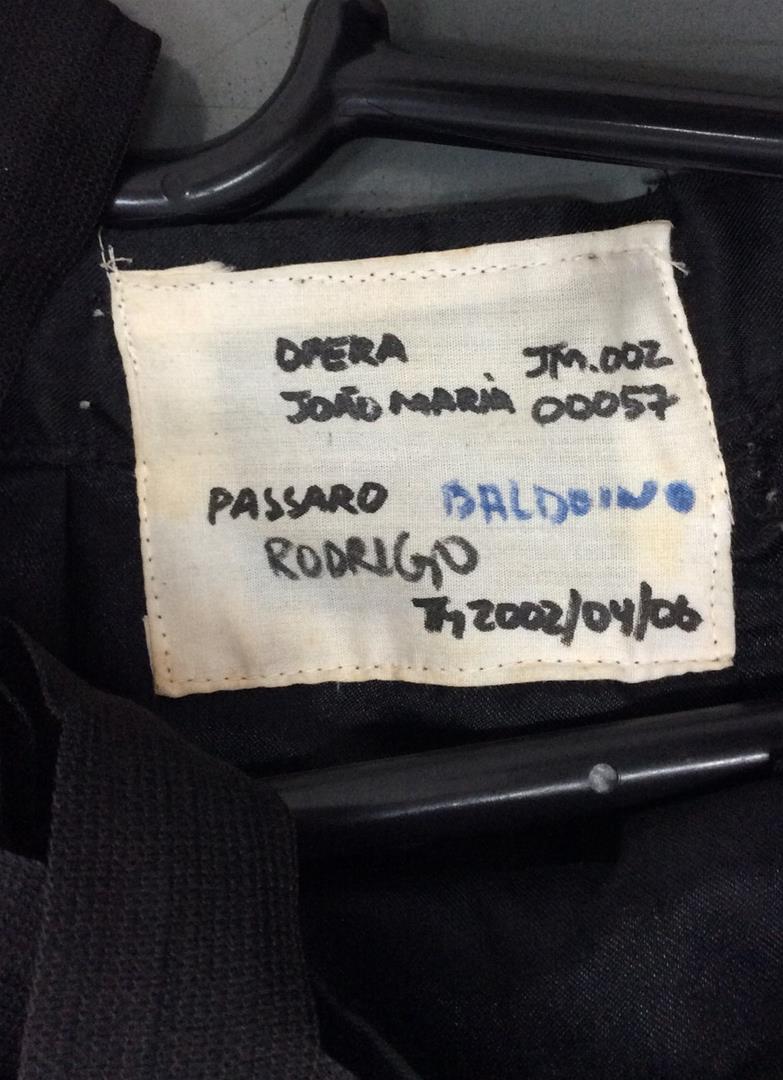 OPERA JM.002
JOÃO MARIA 00057
PASSARO BALDOINO
RODRIGO
2002/04/06